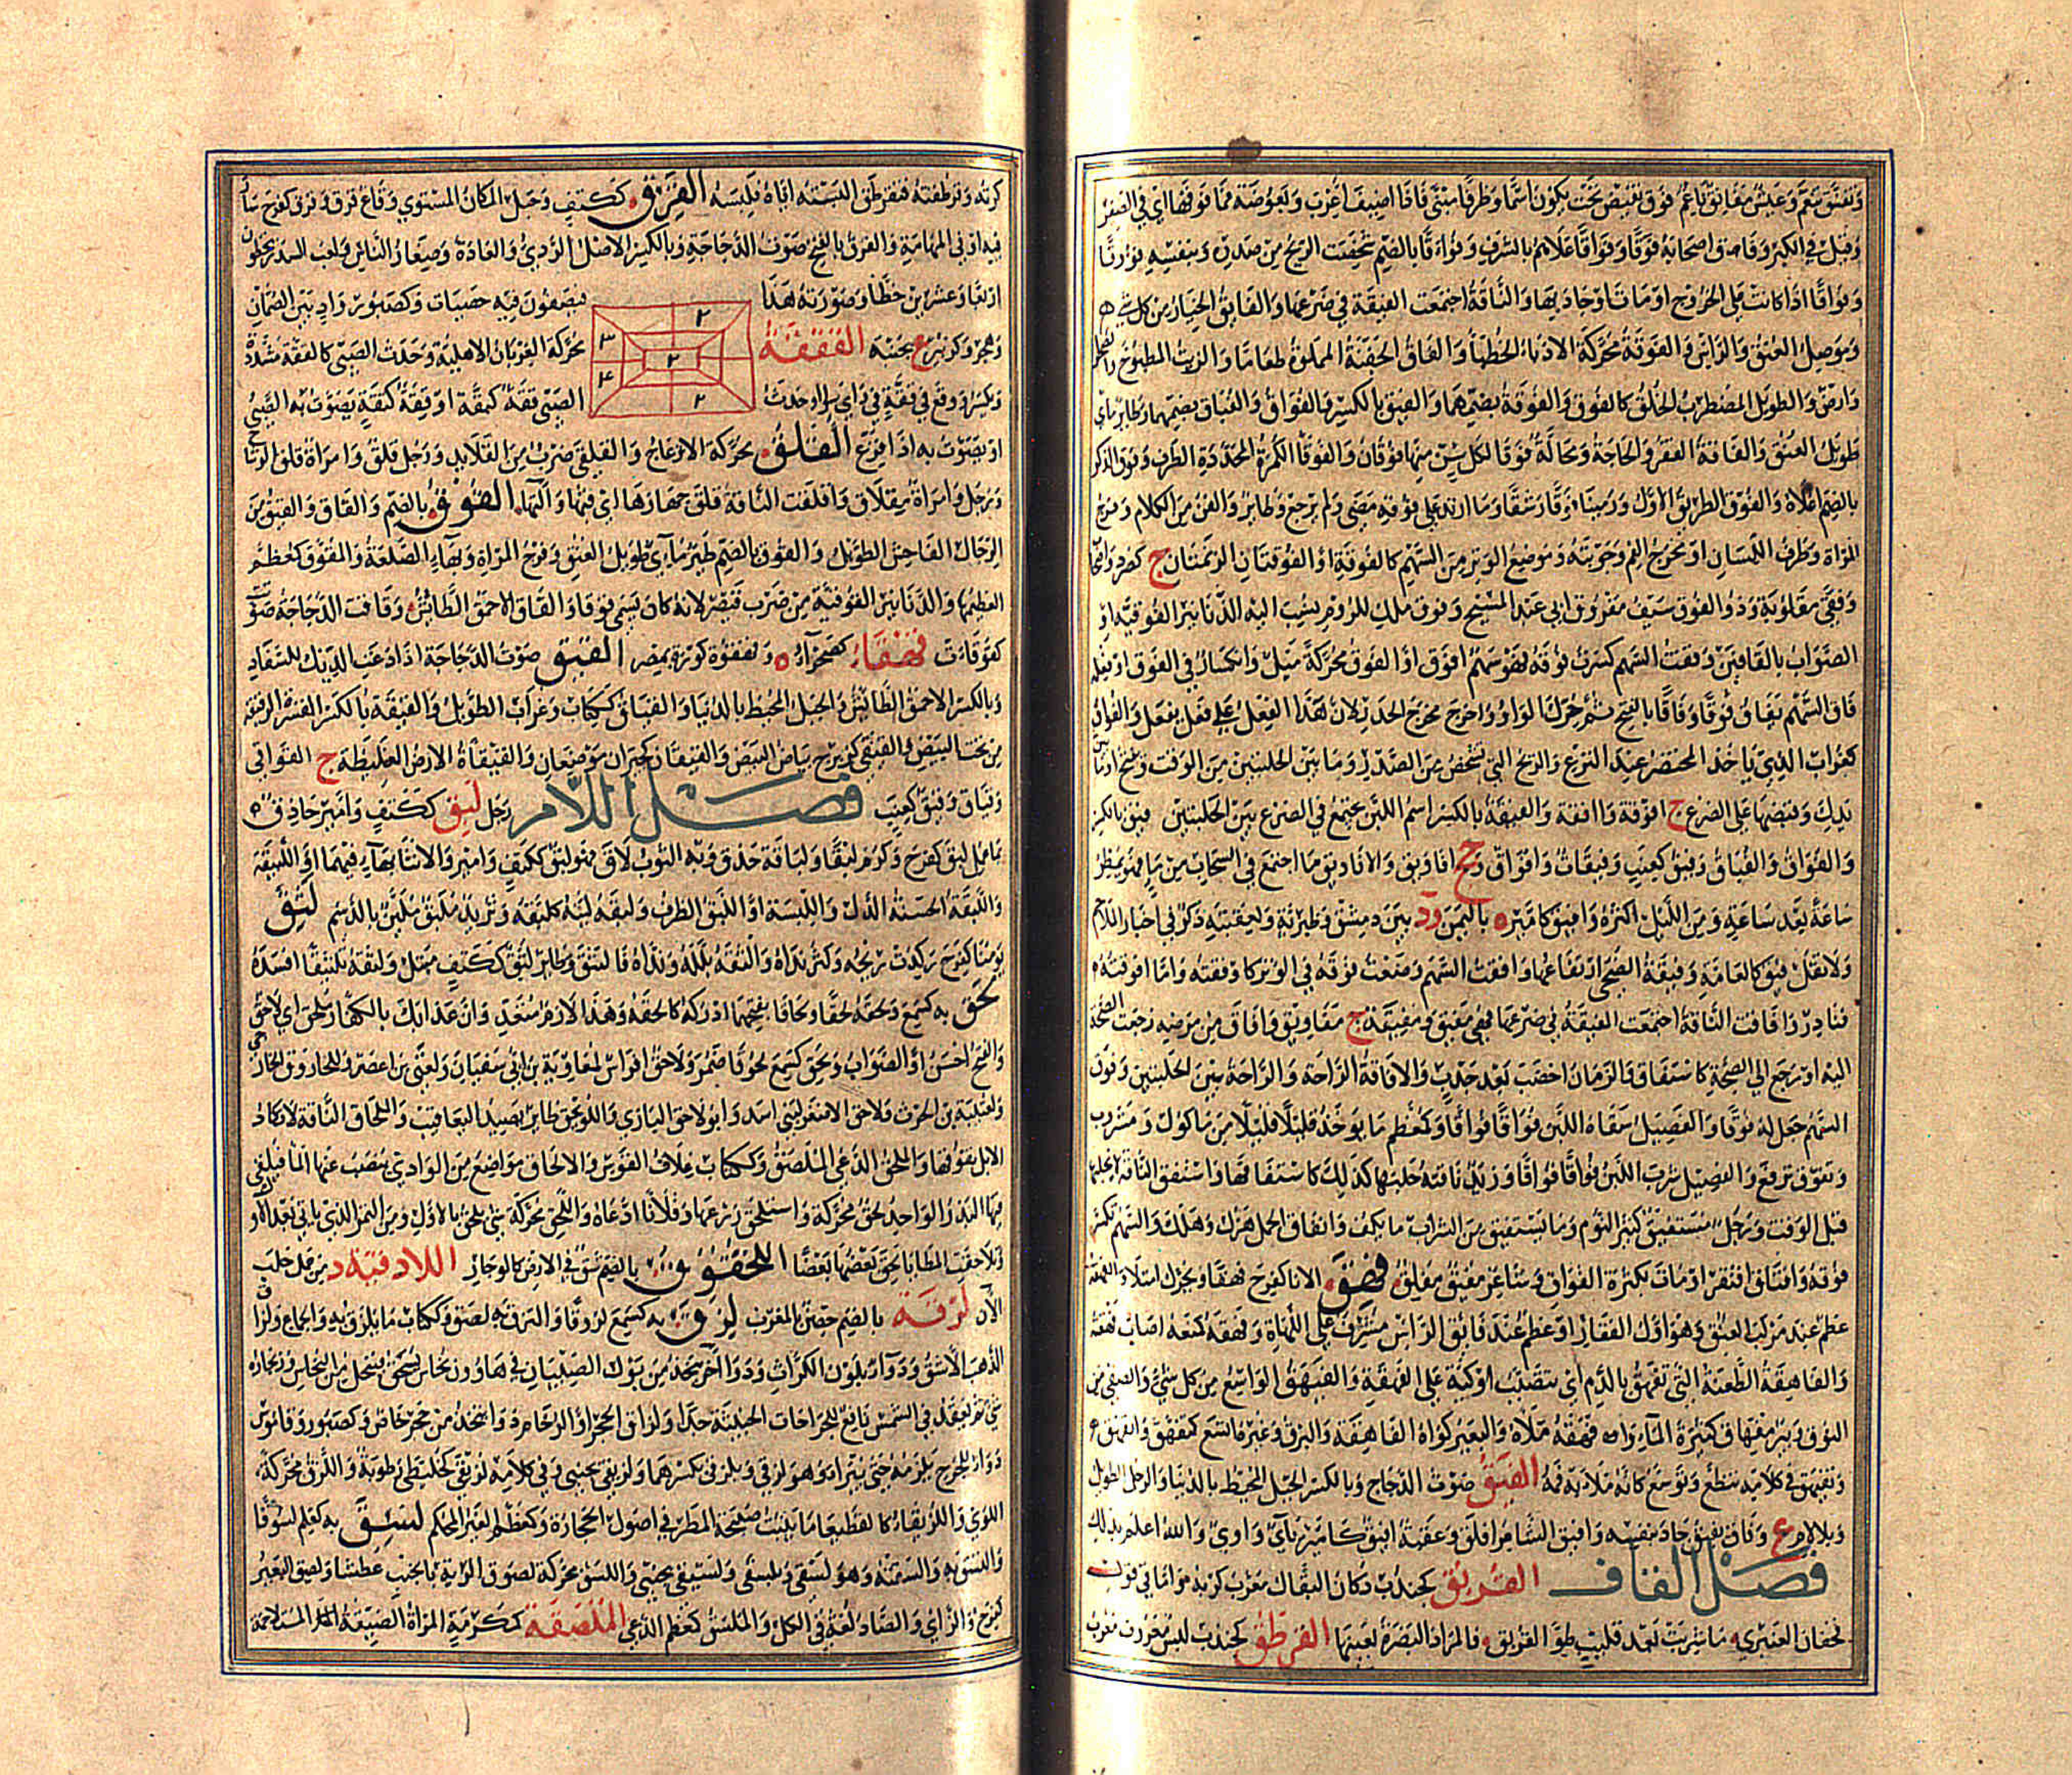 وتفنق تنعم وعيش مفانق ناعم فوق نقيض تحت يكون اسما وظرفا مبني فاذا اضيف اعرب وبعوضة فما فوقها اي في الصغر
وقيل في الكبر وفاق اصحابه فوقا وفواقا علاهم بالشرف وفواقا بالضم شخصت الريح من صدره وبنفسه فووقا
وفواقا اذا كانت على الخروج او مات او جاد بها والناقة اجتمعت الفيقة في ضرعها والفائق الخيار من كل شيء
وموصل العنق والراس والفوقة محركة الادباء الخطباء والفاق الجفنة المملوة طعاما والزيت المطبوخ والصحراء
وارض والطويل المضطرب الخلق كالفوق والفوقة بضمهما والفيق بالكسر والفواق والفياق بضمهما وطاير مائي
طويل العنق والفاقة الفقر والحاجة ومحالة فوقا لكل سن منها فوقان والفوقا الكمرة المحددة الطرف وفوق الذكر
بالضم اعلاه والفوق الطريق الاول ورمينا فوقا رشقا وما ارتد على فوقه مضى ولم يرجع وطاير والفن من الكلام وفرج
المراة وطرف اللسان او مخرج الفم وجوبته وموضع الوتر من السهم كالفوقة او الفوقتان الزنمتان ج كصرد واصحاب
وفقى مقلوبة وذو الفوق سيف مفروق ابي عبد المسيح وفوق ملك للروم نسب اليه الدنانير الفوقية او
الصواب بالقافين وفقت السهم كسرت فوقه فهو سهم افوق اذا الفوق محركة ميل وانكسار في الفوق او فعله
فاق السهم يفاق فوقا وفاقا بالفتح ثم حرك الواو واخرج مخرج الحذر لان هذا الفعل على فعل يفعل والفواق
كغراب الذي ياخذ المحتضر عند النزع والريح التي تشخص من الصدر وما بين الحلبتين من الوقت وتفتح او ما بين فتح
يدك وقبضها على الضرع ج افوقة وافقة والفيقة بالكسر اسم اللبن يجتمع في الضرع بين الحلبتين فيق بالكسر
والفواق والفياق وفيق كعنب وفيقات وافواق وجج افاويق والافاويق ما اجتمع في السحاب من ماء فهو يمطر
ساعة بعد ساعة ومن الليل اكثره وافيق كامير ه باليمن ود بين دمشق وطبرية ولعقبته ذكر في اخبار الملاحم
ولا تقل فيق كالعامة وفيقة الضحى ارتفاعها وافقت السهم وضعت فوقه في الوتر كاوفقته واما افوقته
فنادر وافاقت الناقة اجتمعت الفيقة في ضرعها فهي مفيق ومفيقة ج مفاويق وافاق من مرضه رجعت الصحة
اليه او رجع الى الصحة كاستفاق والزمان اخصب بعد جدب والافاقة الراحة والراحة بين الحلبتين وفوق
السهم جعل له فوقا والفصيل سقاه اللبن فواقا فواقا وكمعظم ما يوخذ قليلا قليلا من ماكول ومشروب
وتفوق ترفع والفصيل شرب اللبن فواقا فواقا وزيد ناقته حلبها كذلك كاستفاقها واستفق الناقة لا تحلبها
قبل الوقت ورجل مستفيق كثير النوم وما يستفيق من الشراب ما يكف وانفاق الجمل هزل وهلك والسهم انكسر
فوقه وافتاق افتقر او مات بكثرة الفواق وشاعر مفيق مفلق فهق الانا كفرح فهقا ويحرك امتلا والفهقة
عظم عند مركب العنق وهو اول الفقار او عظم عند فائق الراس مشرف على اللهاة وفهقه كمنعه اصاب فهقته
والفاهقة الطعنة التي تفهق بالدم اي تتصبب او كية على الفهقة والفيهق الواسع من كل شيء والصفي من
النوق وبئر مفهاق كثيرة الماء وافهقه ملاه والبعير كواه الفاهقة والبرق وغيره اتسع كتفهق وانفهق
وتفيهق في كلامه تنطع وتوسع كانه ملا به فمه الفيق صوت الدجاج وبالكسر الجبل المحيط بالدنيا والرجل الطويل
وبلا لام ع وفاق يفيق جاد بنفسه وافيق الشاعر افلق وعقبة افيق كامير يائي واوي والله اعلم بذلك
فصل القاف القربق كجندب دكان البقال معرب كربه واما في قول
نحفان العنبري ما شربت بعد قليب القربق فالمراد البصرة بعينها القرطق كجندب لبس معروف معرب
كرته وقرطقته فتقرطق البسته اياه فلبسه القرق ككتف وجبل المكان المستوي وقاع قرق وقرق كفرح سار
فيه او في المهامة والقرق بالفتح صوت الدجاجة وبالكسر الاصل الردي والعادة وصغار الناس ولعب السدر يخطون
اربعا وعشرين خطا وصورته هذا
فيصفون فيه حصيات وكصبور واد بين الصمان
٢
٣
٢
٤
٢
وهجر وكزبير ع بجنبه القققة
محركة الغربان الاهلية وحدث الصبي كالققة مشددة
وتكسر ووقع في ققة في راي سوء او حدث
الصبي ققة كبقة او ققة كثقة يصوت به الصبي
او يصوت به اذا فزع القلق محركة الانزعاج والقلقي ضرب من القلايد ورجل قلق وامراة قلق الوشاح
ورجل وامراة مقلاق واقلقت الناقة قلق جهازها اي قتبها والتها القوق بالضم والقاق والقيق من
الرجال الفاحش الطويل والقوق بالضم طير مائي طويل العنق وفرج المراة وبهاء الصلعة والمقوق كمعظم
العظيمها والدنانير القوقية من ضرب قيصر لانه كان يسمى قوقا والقاق الاحمق الطائش وقاقت الدجاجة صوتت
كقوقات قهقاء كصحراء ه وقهقوه كورة بمصر القيق صوت الدجاجة اذا دعت الديك للسفاد
وبالكسر الاحمق الطائش والجبل المحيط بالدنيا والقياق ككتاب وغراب الطويل والقيقة بالكسر القشرة الرقيقة
من تحت البيض والقيقي كزبرج بياض البيض والقيقان كجيران موضعان والقيقاة الارض الغليظة ج القواقي
وقياق وقيق كعنب فصل اللام رجل لبق ككتف وامير حاذق
بما عمل لبق كفرح وكرم لبقا ولباقة حذق وبه الثوب لاق فهو لبق ككتف وامير والانثى بهاء فيهما او اللبيقة
واللبقة الحسنة الدل واللبسة او اللبق الظرف ولبقه لينه كلبقه وثريد ملبق ملين بالدسم لثق
يومنا كفرح ركدت ريحه وكثر نداه والثقه بلله ونداه فالتثق وطاير لثق ككتف مبتل ولثقه تلثيقا افسده
لحق به كسمع ولحقه لحقا ولحاقا بفتحهما ادركه كالحقه وهذا لازم متعد وان عذابك بالكفار ملحق اي لاحق
والفتح احسن او الصواب ولحق كسمع لحوقا ضمر ولاحق افراس لمعاوية بن ابي سفيان ولغني بن اعصر وللحازوق الخارجي
ولعتيبة بن الحرث ولاحق الاصغر لبني اسد وابو لاحق البازي واللويحق طاير يصيد اليعاقيب والملحاق الناقة لا تكاد
الابل تفوقها والملحق الدعي الملصق وككتاب غلاف القوس والالحاق مواضع من الوادي ينضب عنها الماء فيلقى
فيها البذر الواحد لحق محركة واستلحق زرعها وفلانا ادعاه واللحق محركة شيء يلحق بالاول ومن التمر الذي ياتي بعد الاول
وتلاحقت المطايا لحق بعضها بعضا اللخقوق بالضم شق في الارض كالوجار اللاذقية د من عمل حلب
الان لرقة بالضم حصن بالمغرب لزق به كسمع لزوقا والتزق به لصق وككتاب ما يلزق به والجماع ولزاق
الذهب الاشق ودواء ببلون الكراث ودواء اخر يتخذ من بول الصبيان في هاون نحاس يسحق فينحل من النحاس وزنجاره
شيء ثم يعقد في الشمس نافع للجراحات الخبيثة جدا ولزاق الحجر او الرخام دواء يتخذ من حجر خاص وكصبور وقاموس
دواء للجرح يلزمه حتى يبرا وهو لزقي ولزقي بكسرهما ولزيقي بجنبي وفي كلامه لزيقى كخليطى رطوبة واللزق محركة
اللوي واللزيقاء كالقطيعا ما ينبت صبيحة المطر في اصول الحجارة وكمعظم الغير المحكم لسق به كعلم لسوقا
والتسق به والسقته وهو لسقي وبلسقي ولسيقي بجنبي واللسق محركة لصوق الرية بالجنب عطشا ولصق البعير
كفرح والزاي والصاد لغة في الكل والملسق كمعظم الدعي الملصقة كمكرمة المراة الضيقة المتلاحمة